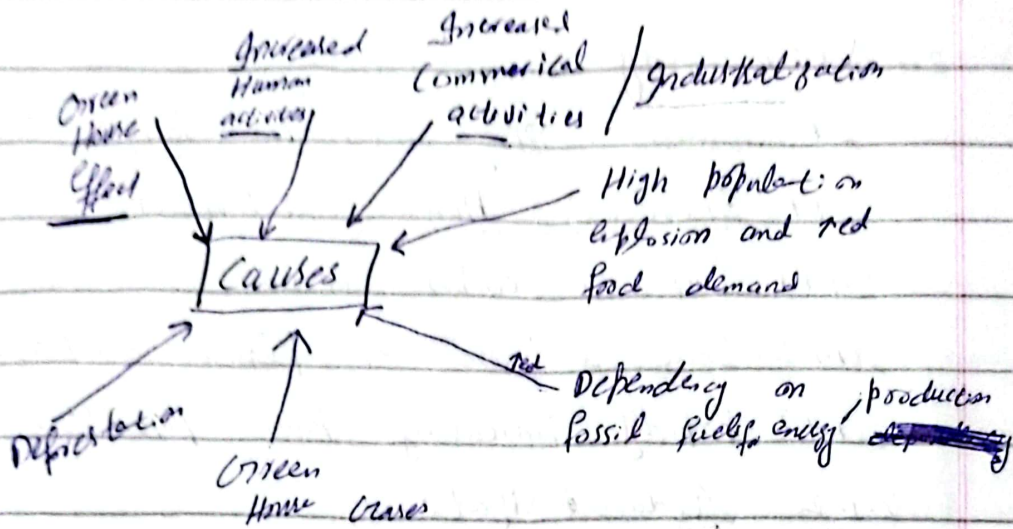 Green
House
Effect
Increased
Human
activities
Increased
Commerical
activities / Industrialization
High population
explosion and ↑ed
food demand
Causes
↑ed Dependency on
fossil fuels energy production
Deforestation
Green
House Gases